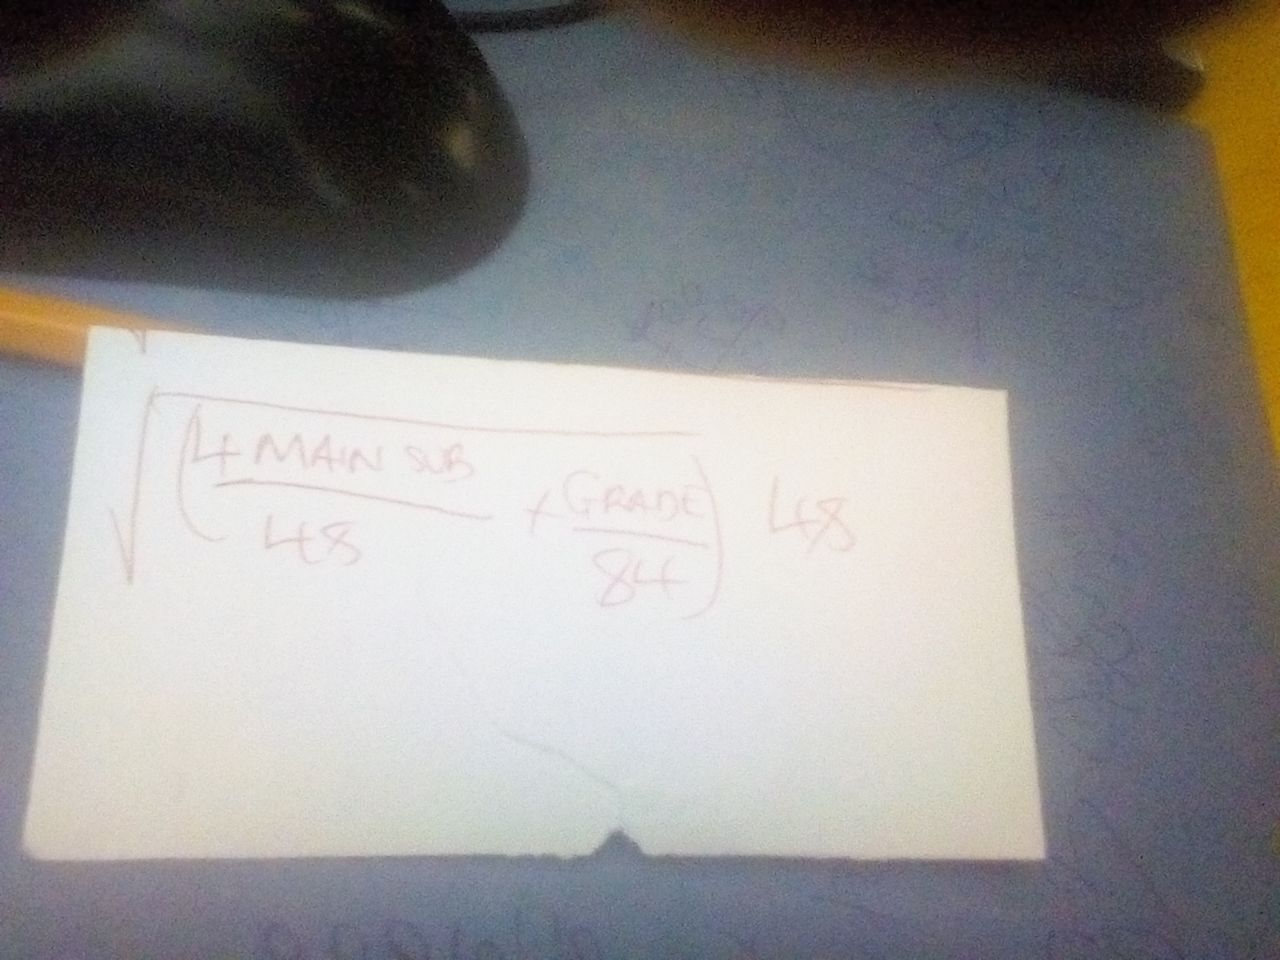 √(4 MAIN SUB / 48 × GRADE / 84) 48